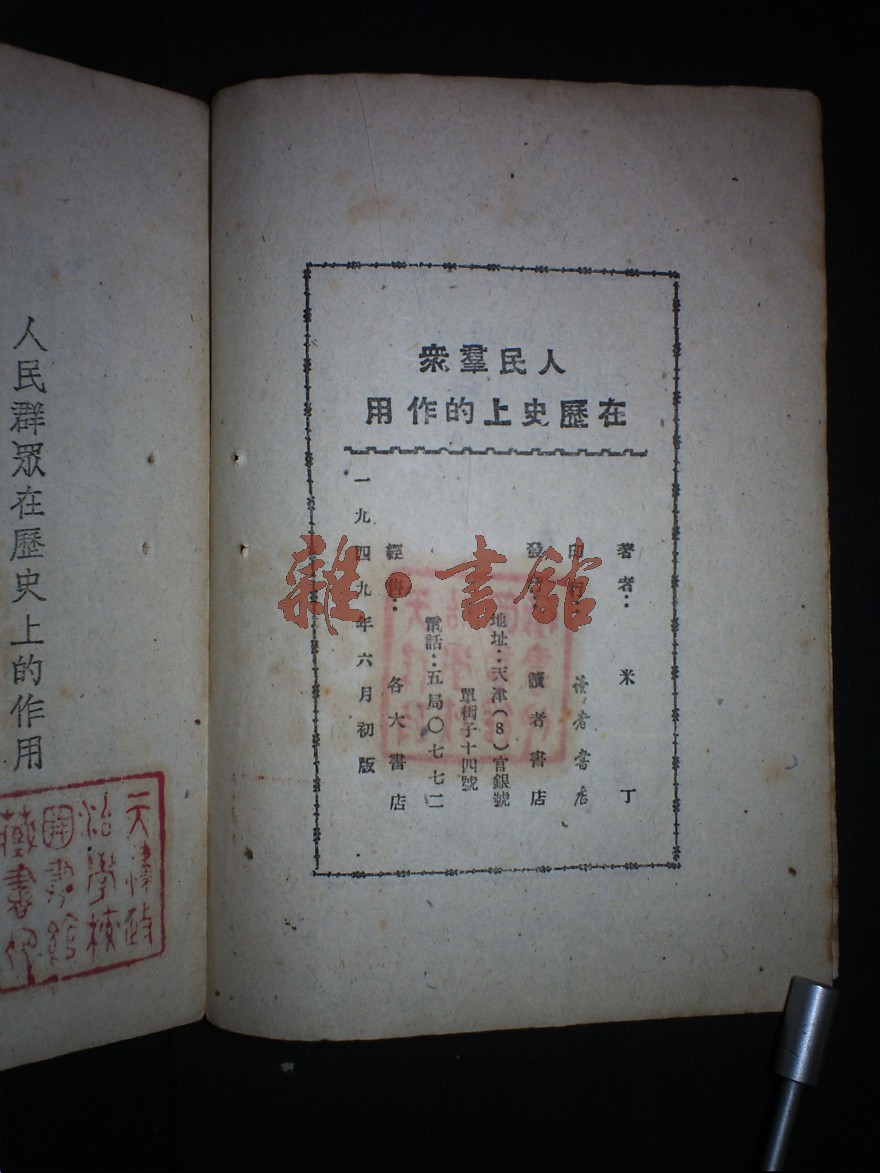 人民羣衆
在歷史上的作用
著者：米丁
印行：讀者書店
發行：讀者書店
地址：天津（8）官銀號
單街子十四號
電話：五局〇七七二
經售：各大書店
一九四九年六月初版
人民群眾在歷史上的作用
天津政
治學校
圖書館
藏書印
雜·書館